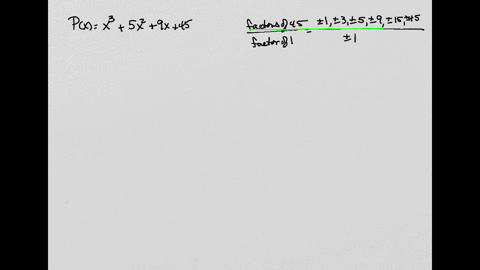 P(x) = x³ + 5x² + 9x + 45
factors of 45 / factor of 1 = ±1, ±3, ±5, ±9, ±15, ±45 / ±1